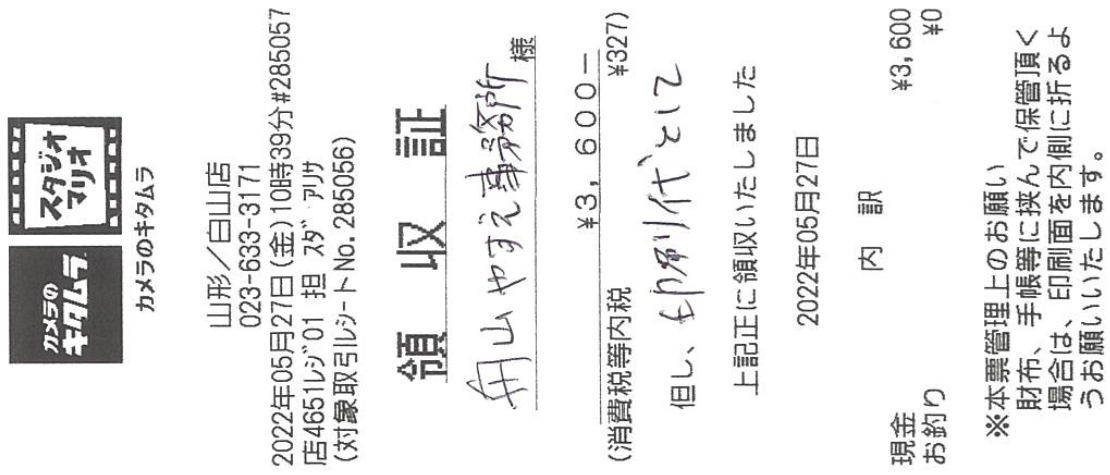 カメラの
キタムラ
スタジオ
マリオ
カメラのキタムラ
山形／白山店
023-633-3171
2022年05月27日(金)10時39分#285057
店4651レジ01 担 スダ アリサ
(対象取引レシートNo.285056)
領 収 証
舟山やすえ事務所 様
¥3,600−
(消費税等内税 ¥327)
但し、印刷代として
上記正に領収いたしました
2022年05月27日
内 訳
現金 ¥3,600
お釣り ¥0
※本票管理上のお願い
財布、手帳等に挟んで保管頂く
場合は、印刷面を内側に折るよ
うお願いいたします。